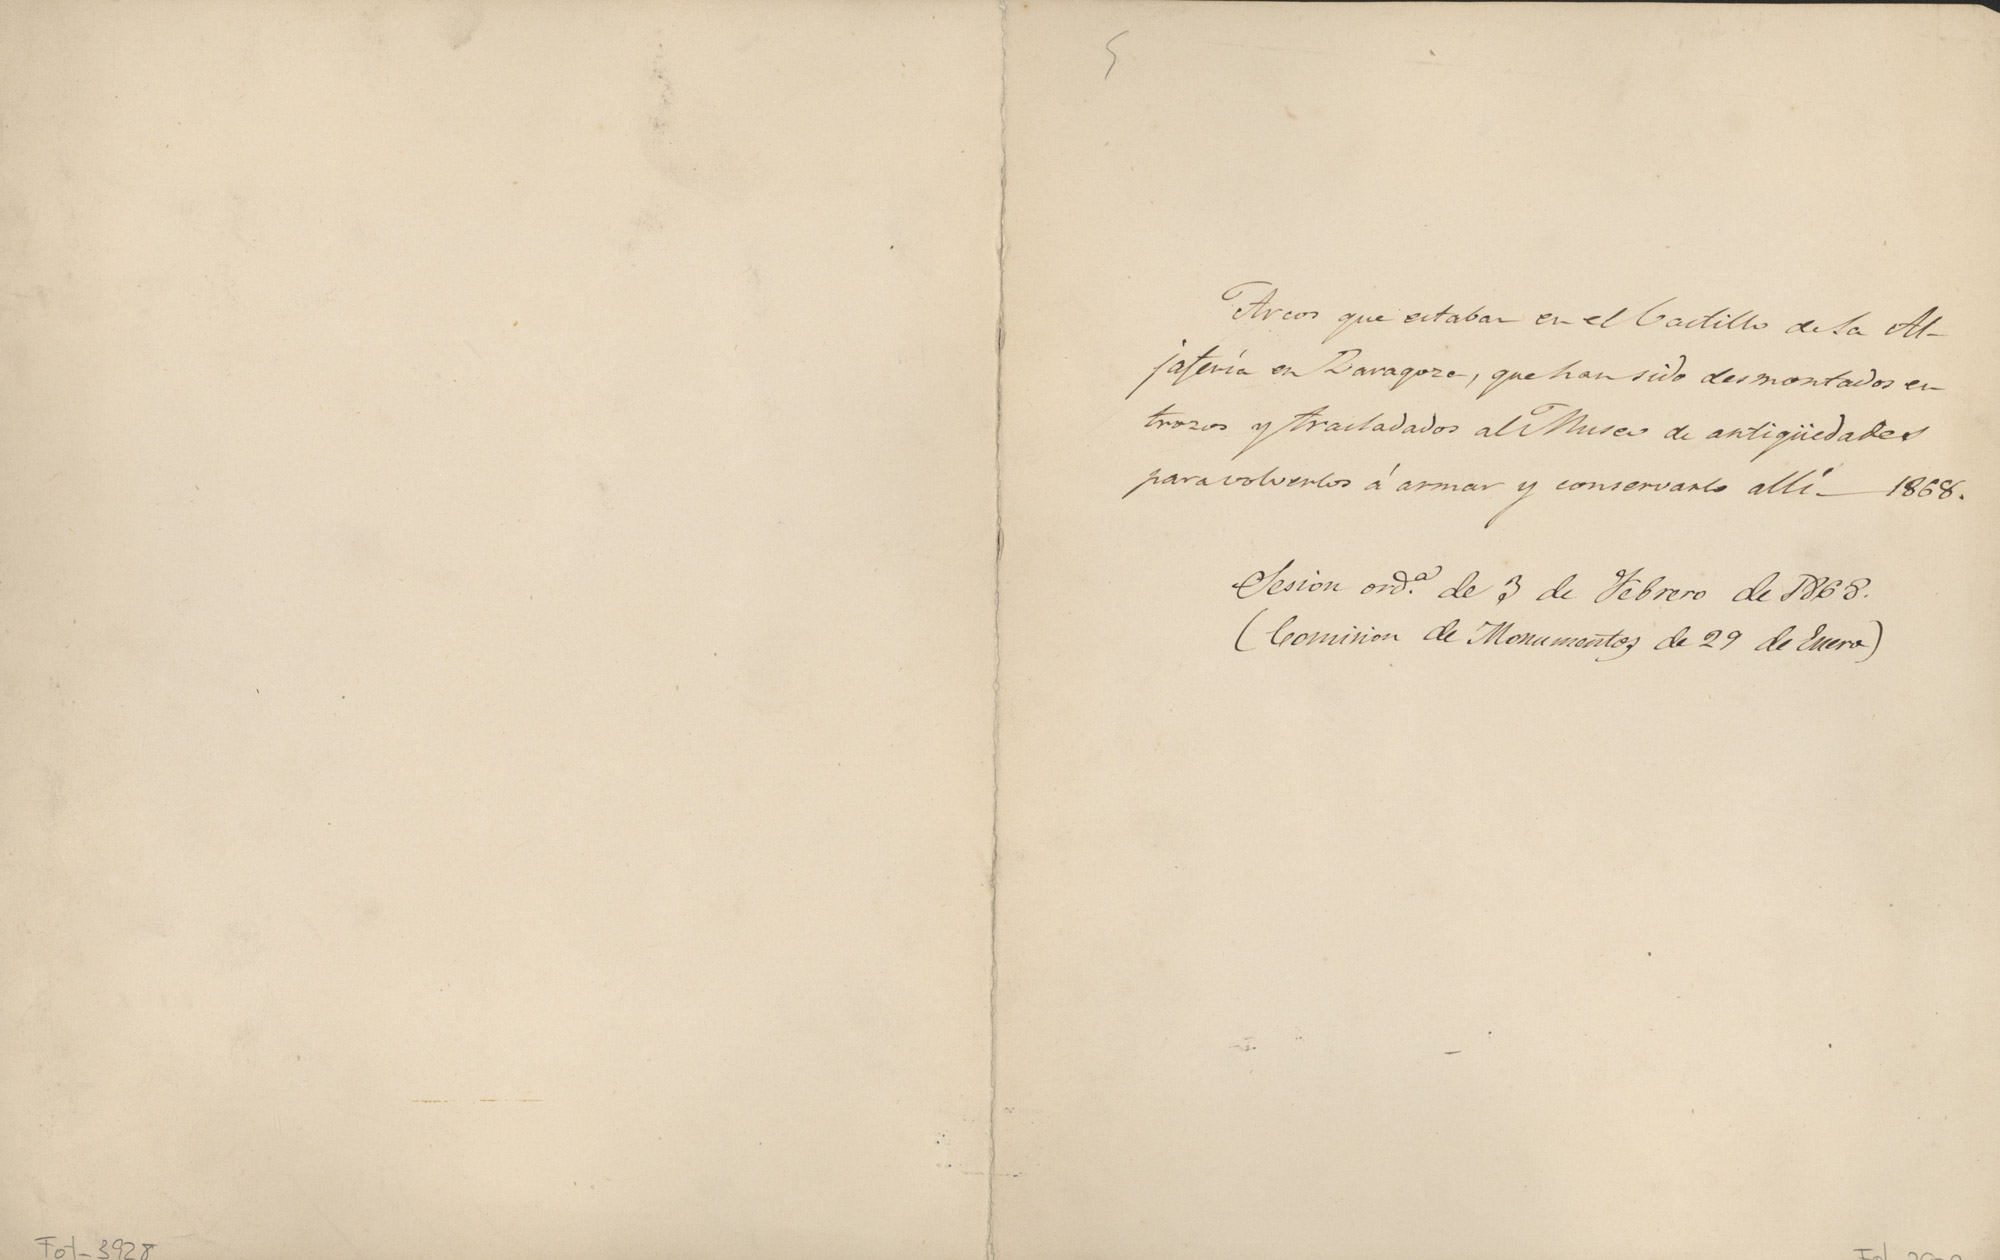 Arcos que estaban en el Castillo de la Al-
jafería en Zaragoza, que han sido desmontados en
trozos y trasladados al Museo de antigüedades
para volverlos á armar y conservarlo allí — 1868.
Sesion ord.ª de 3 de Febrero de 1868.
(Comision de Monumentos de 29 de Enero)
Fot-3928